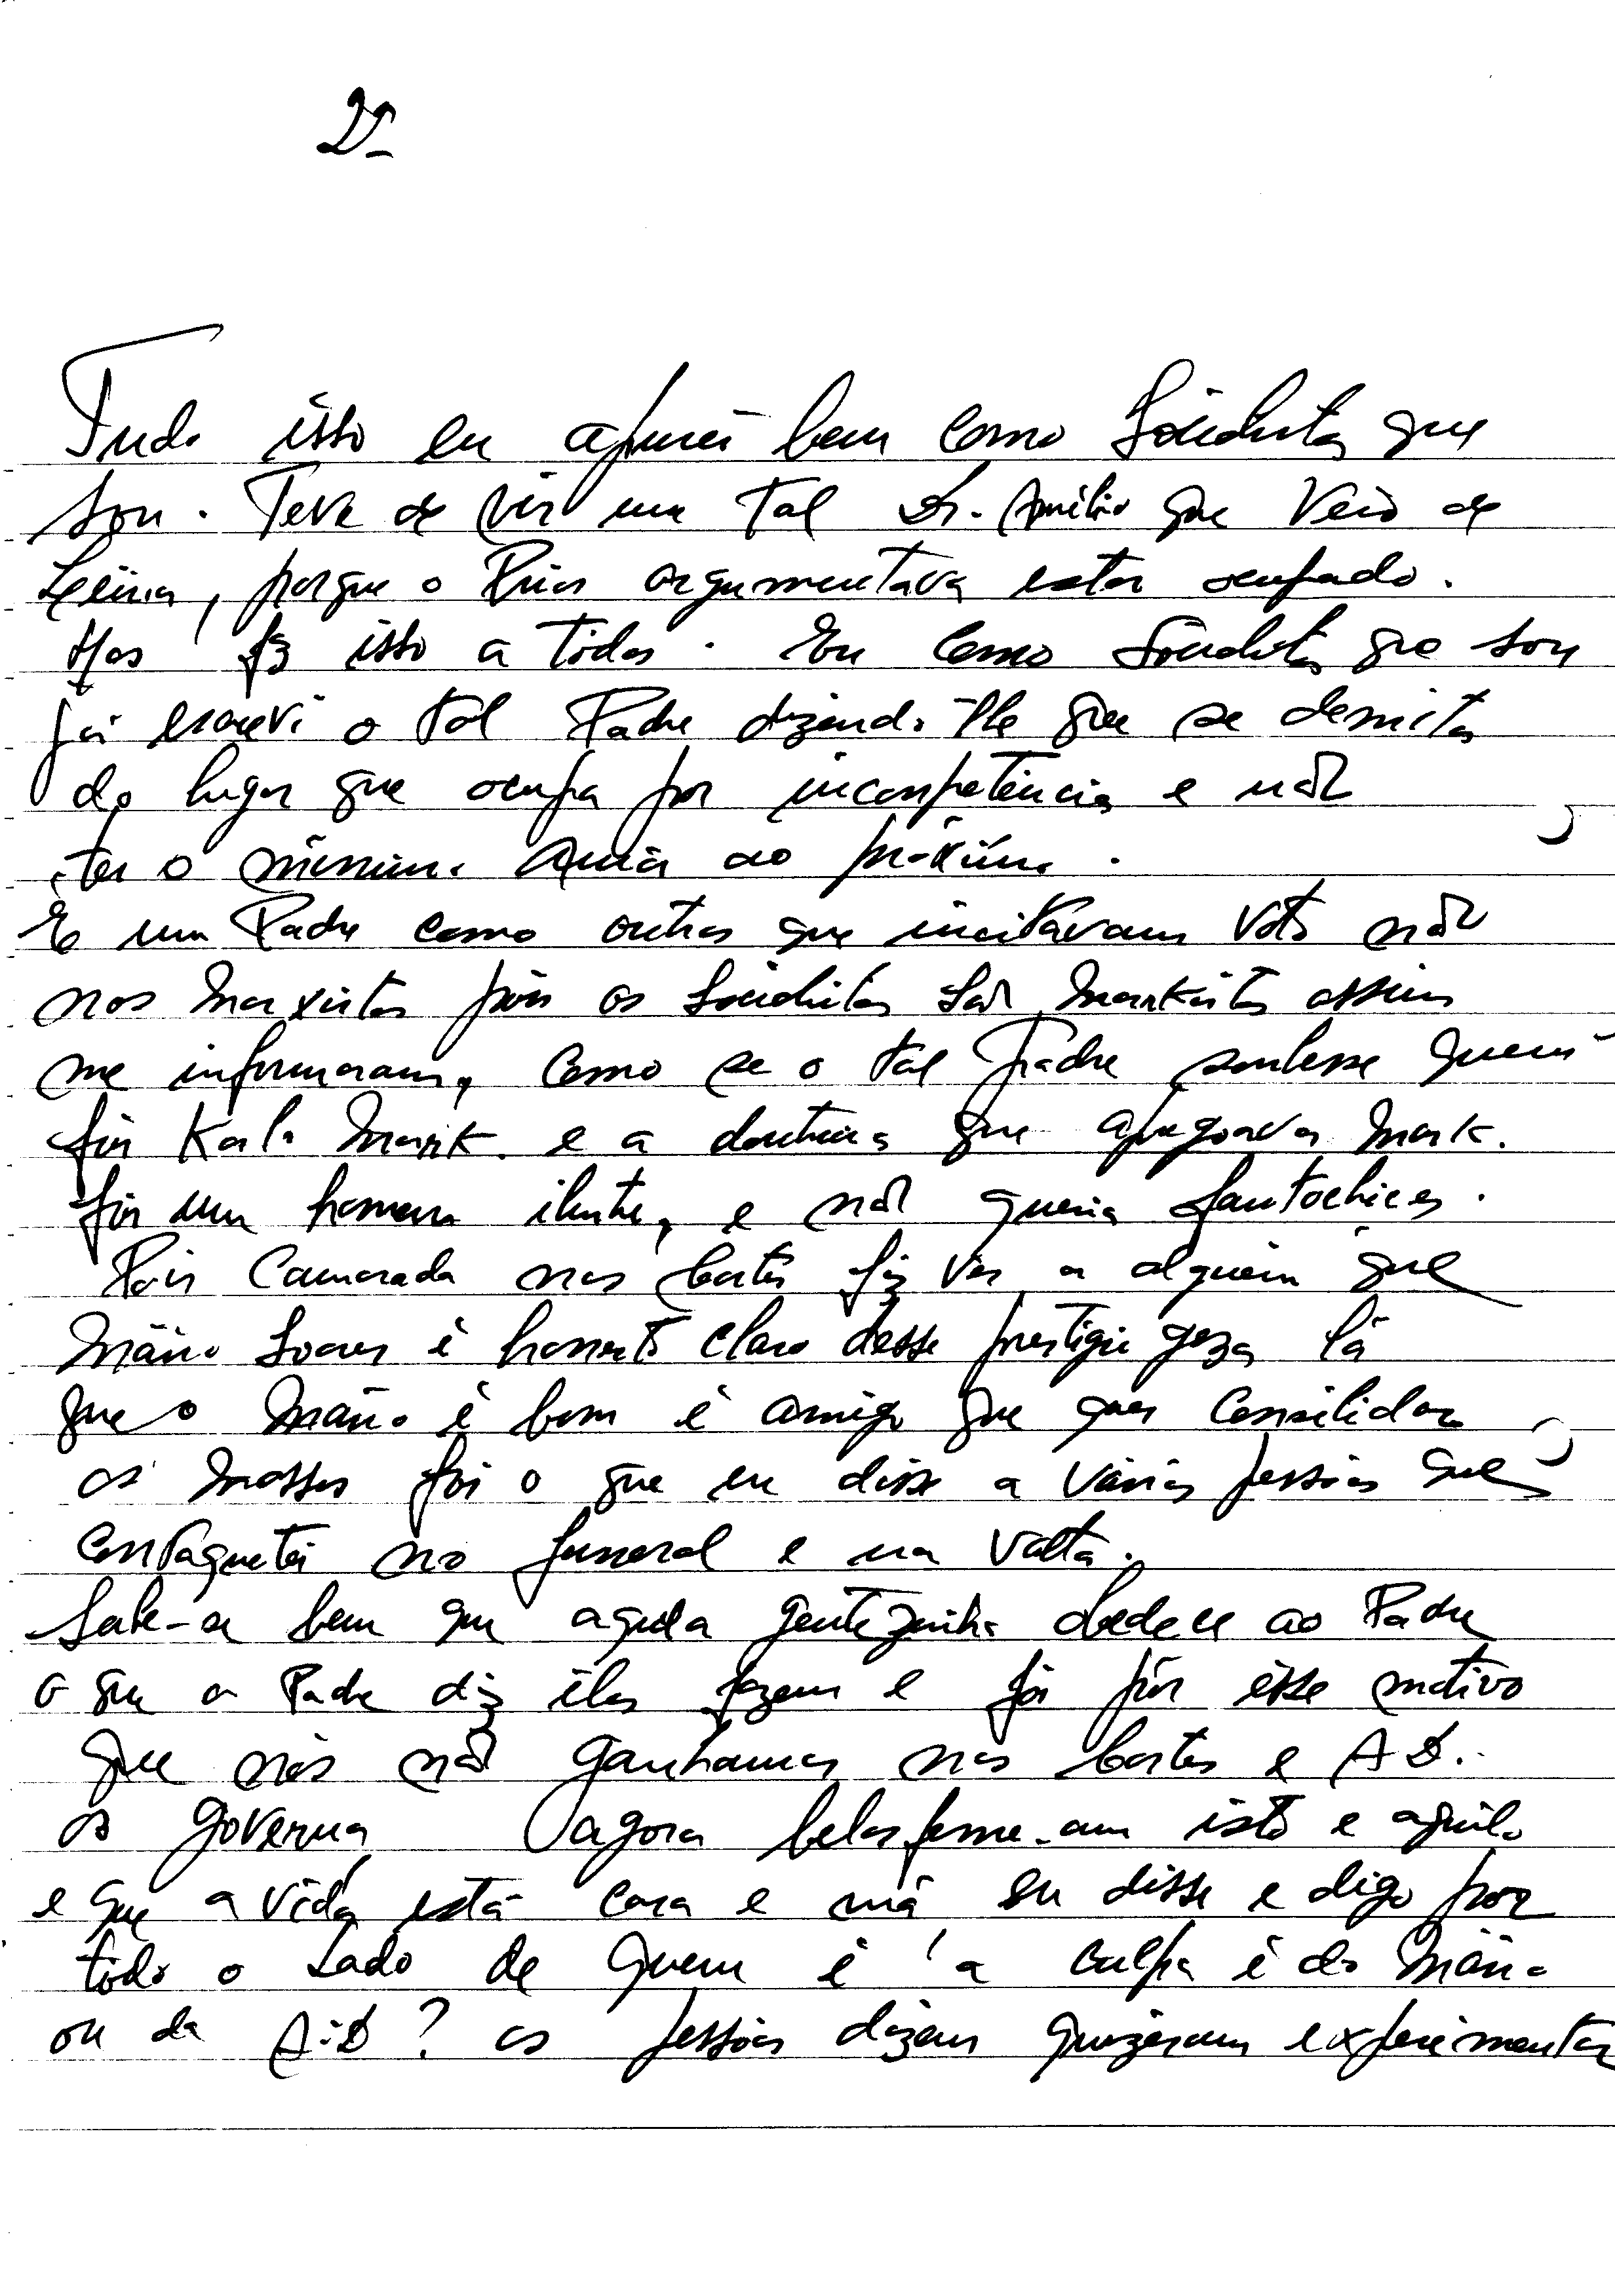 2º
Tudo isso eu apurei bem como Socialista que
sou. Teve de vir um tal Dr. Amílio que veio de
Leiria, porque o Prior argumentava estar ocupado.
Mas fz isso a todos. Eu como Socialista que sou
já escrevi o tal Padre dizendo-lhe que se demita
do lugar que ocupa por incompetência e não
ter o minimo amôr ao próximo.
E um Padre como outros que incitavam voto não
nos Marxistas pois os Socialistas são Markistas assim
me informaram, como se o tal Padre soubesse quem
foi Karlo Mark. e a doutrina que apregoava Mark.
foi um homem ilustre, e não queria fantochices.
Pois Camarada nas Cortes fiz ver a alguem que
Mário Soares é honesto claro desse prestigio goza lá
que o Mário é bom é amigo que quer consilidar
as massas foi o que eu disse a várias pessôas que
contaquetei no funeral e na volta.
Sabe-se bem que aquela gentezinha obedece ao Padre
o que o Padre diz êles fazem e foi pôr êsse motivo
que nós não ganhamos nas Cortes e A D.
os governa agora belasfeme-am isto e aquilo
e que a vida está cara e má eu disse e digo por
todo o lado de quem é a culpa é do Mário
ou da A.D? as pessôas dizem quizeram experimentar